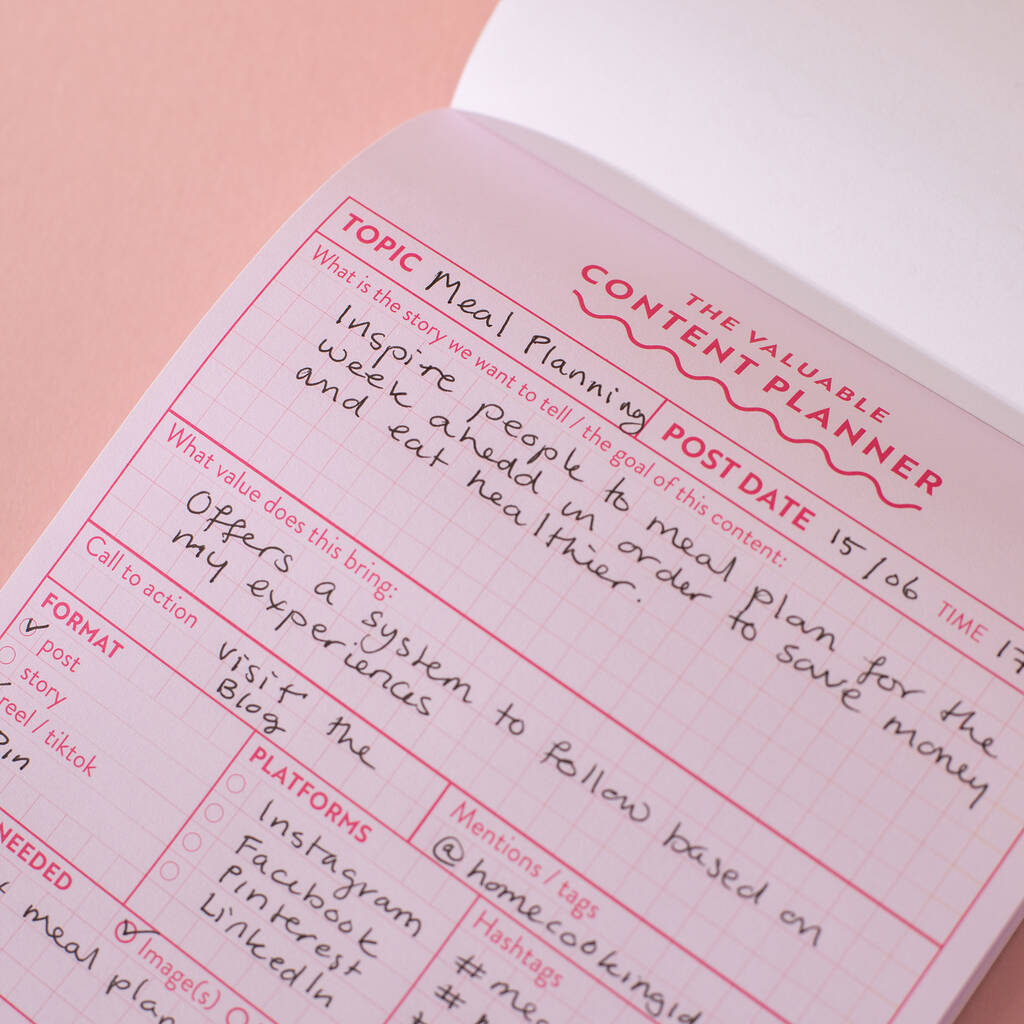 THE VALUABLE
CONTENT PLANNER
TOPIC Meal Planning
POST DATE 15/06 TIME 17
What is the story we want to tell / the goal of this content:
Inspire people to meal plan for the
week ahedd in order to save money
and eat healthier.
What value does this bring:
Offers a system to follow based on
my experiences
Call to action
visit the
Blog
Mentions / tags
@homecookingid
FORMAT
post
story
reel / tiktok
Pin
PLATFORMS
Instagram
Facebook
Pinterest
LinkedIn
Hashtags
#mea
#
NEEDED
meal plan
Image(s)